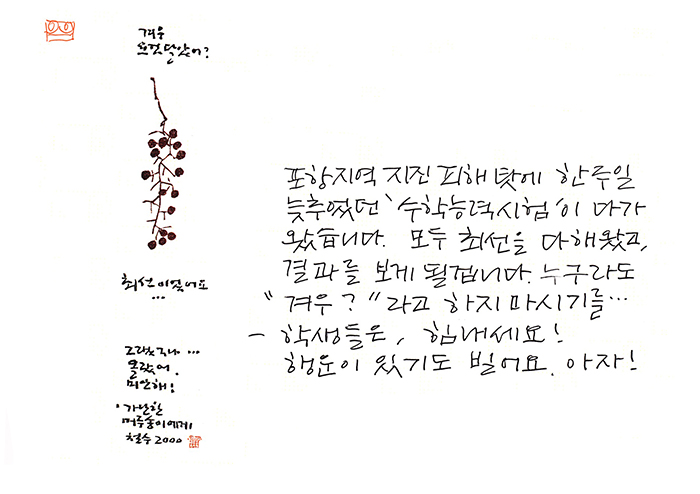 겨우
요것 달았어?
최선이었어요
...
그랬구나...
몰랐어.
미안해!
· 가난한
머루송이에게
철수 2000
포항지역 지진 피해 탓에 한주일
늦추었던 '수학능력시험'이 다가
왔습니다. 모두 최선을 다해왔고,
결과를 보게 될겁니다. 누구라도
"겨우?"라고 하지 마시기를...
- 학생들은, 힘내세요!
행운이 있기도 빌어요. 아자!